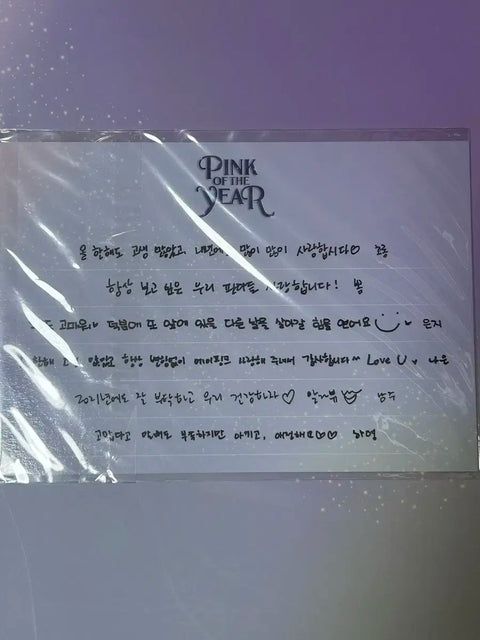 PINK
OF THE
YEAR
올 한해도 고생 많았고, 내년에도 많이 많이 사랑합시다♡ 초롱
항상 보고 싶은 우리 판다들 사랑합니다! 뽐
고마워 덕분에 또 앞에 있을 다른 날을 살아갈 힘을 얻어요 은지
한해 항상 변함없이 에이핑크 사랑해 주셔서 감사합니다^^ Love U 나은
2021년에도 잘 부탁하고 우리 건강하자♡ 알라뷰 남주
고맙다고 말해도 부족하지만 아끼고, 애정해요♡♡ 하영